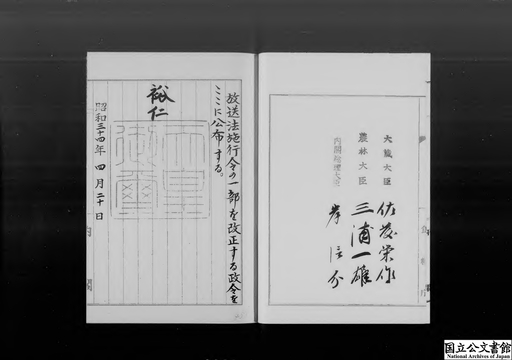 大蔵大臣 佐藤栄作
農林大臣 三浦一雄
内閣総理大臣 岸信介
放送法施行令の一部を改正する政令を
ここに公布する。
裕仁
天皇
御璽
昭和三十四年四月二十日
国立公文書館
National Archives of Japan